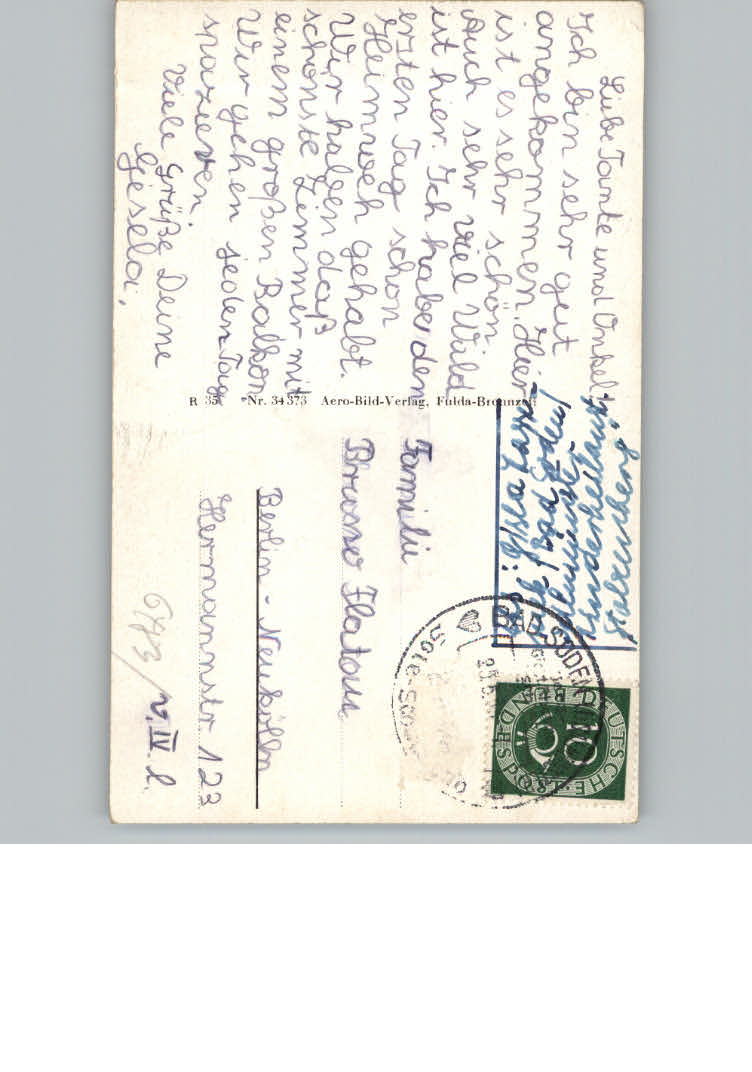 Liebe Tante und Onkel!
Ich bin sehr gut
angekommen. Hier
ist es sehr schön
Auch sehr viel Wald
ist hier. Ich habe den
ersten Tag schon
Heimweh gehabt.
Wir haben daß
schönste Zimmer mit
einem großen Balkon
Wir gehen jeden Tag
spazieren.
Viele Grüße Deine
Gisela.
R 35 Nr. 34 373 Aero-Bild-Verlag, Fulda-Bronnzell
Bad Soden
Kinderheilanst.
BAD SODEN
Sole-
DEUTSCHE BUNDESPOST
10
Familie
Bruno
Berlin-Neukölln
Hermannstr 123
6483/
IV. l.